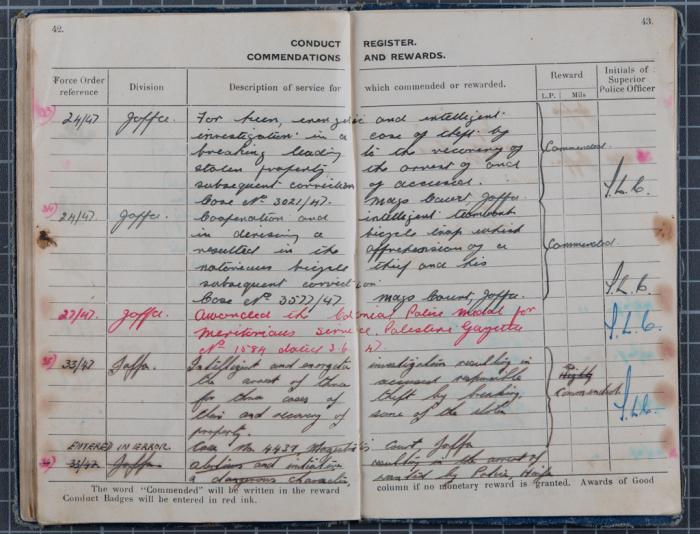 42.
43.
CONDUCT REGISTER.
COMMENDATIONS AND REWARDS.
Force Order reference
Division
Description of service for which commended or rewarded.
Reward
L.P. Mils
Initials of Superior Police Officer
24/47 Jaffa. For keen, energetic and intelligent
investigation in a case of theft by
breaking leading to the recovery of
stolen property the arrest of and
subsequent conviction of accused.
Case No. 3021/47. Mags Court, Jaffa.
Commended
S.L.C.
24/47. Jaffa. Cooperation and intelligent teamwork
in devising a bicycle trap which
resulted in the apprehension of a
notorious bicycle thief and his
subsequent conviction.
Case No. 3577/47 Mags Court, Jaffa.
Commended
S.L.C.
27/47. Jaffa. Awarded the Colonial Police Medal for
Meritorious Service. Palestine Gazette
No. 1584 dated 3.6.47.
S.L.C.
33/47 Jaffa. Intelligent and energetic investigation resulting in
the arrest of three accused responsible
for three cases of theft by breaking
and recovery of some of the stolen
property.
Case No. 4437, Magistrates Court, Jaffa
Highly
Commended
S.L.C.
ENTERED IN ERROR.
33/47 Jaffa. and initiative resulting in the arrest of
a dangerous character, wanted by Police Haifa
The word "Commended" will be written in the reward column if no monetary reward is granted. Awards of Good
Conduct Badges will be entered in red ink.